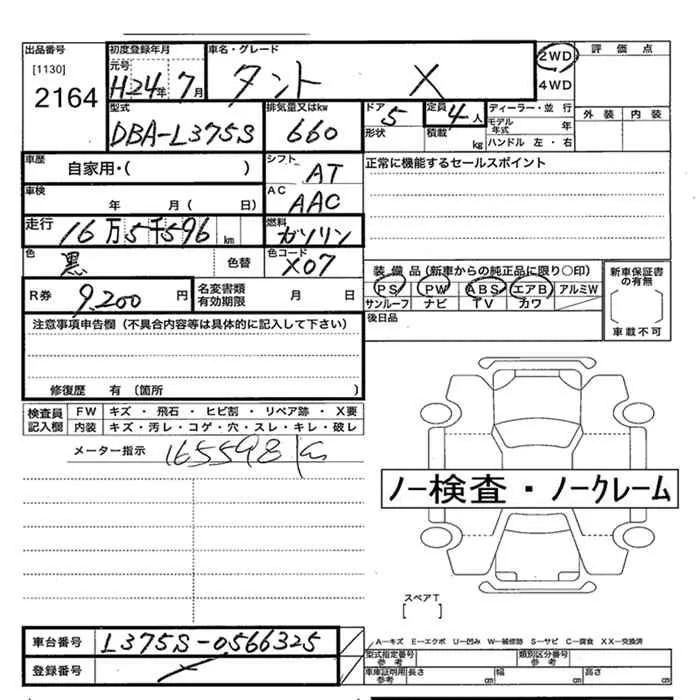 出品番号 初度登録年月 車名・グレード 評価点
[1130] 元号 2WD
2164 H24年 7月 タント X 4WD
型式 排気量又はkw ドア 定員 ディーラー・並行 外装 内装
DBA-L375S 660 5 4人 モデル年式 年
形状 積載 kg ハンドル 左・右
車歴 自家用・( ) シフト AT 正常に機能するセールスポイント
車検 年 月( 日) AC AAC
走行 16万5千596km 燃料 ガソリン
色 黒 色替 色コード X07 装備品(新車からの純正品に限り○印) 新車保証書の有無
R券 9,200円 名変書類有効期限 月 日 PS PW ABS エアB アルミW
サンルーフ ナビ TV カワ
注意事項申告欄(不具合内容等は具体的に記入して下さい) 後日品 車載不可
修復歴 有 (箇所 )
検査員記入欄 FW キズ・飛石・ヒビ割・リペア跡・X要
内装 キズ・汚レ・コゲ・穴・スレ・キレ・破レ
メーター指示 165598Km
ノー検査・ノークレーム
スペアT
[ ]
A－キズ E－エクボ U－凹み W－補修跡 S－サビ C－腐食 XX－交換済
車台番号 L375S-0566325 型式指定番号 参考 類別区分番号 参考
登録番号 車庫証明用 参考 長さ cm 幅 cm 高さ cm